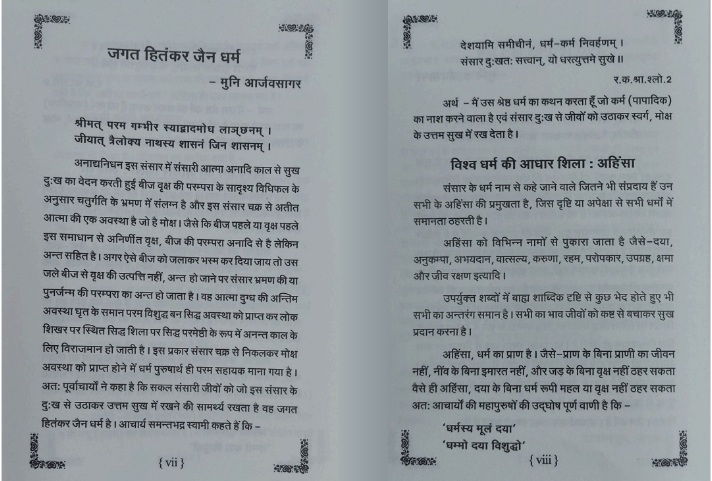 जगत हितंकर जैन धर्म
– मुनि आर्जवसागर
श्रीमत् परम गम्भीर स्याद्वादमोध लाञ्छनम् ।
जीयात् त्रैलोक्य नाथस्य शासनं जिन शासनम् ।
अनाद्यनिधन इस संसार में संसारी आत्मा अनादि काल से सुख
दुःख का वेदन करती हुई बीज वृक्ष की परम्परा के सादृश्य विधिफल के
अनुसार चतुर्गति के भ्रमण में संलग्न है और इस संसार चक्र से अतीत
आत्मा की एक अवस्था है जो है मोक्ष। जैसे कि बीज पहले या वृक्ष पहले
इस समाधान से अनिर्णीत वृक्ष, बीज की परम्परा अनादि से है लेकिन
अन्त सहित है। अगर ऐसे बीज को जलाकर भस्म कर दिया जाय तो उस
जले बीज से वृक्ष की उत्पत्ति नहीं, अन्त हो जाने पर संसार भ्रमण की या
पुनर्जन्म की परम्परा का अन्त हो जाता है। वह आत्मा दुग्ध की अन्तिम
अवस्था घृत के समान परम विशुद्ध बन सिद्ध अवस्था को प्राप्त कर लोक
शिखर पर स्थित सिद्ध शिला पर सिद्ध परमेष्ठी के रूप में अनन्त काल के
लिए विराजमान हो जाती है। इस प्रकार संसार चक्र से निकलकर मोक्ष
अवस्था को प्राप्त होने में धर्म पुरुषार्थ ही परम सहायक माना गया है।
अतः पूर्वाचार्यों ने कहा है कि सकल संसारी जीवों को जो इस संसार के
दुःख से उठाकर उत्तम सुख में रखने की सामर्थ्य रखता है वह जगत
हितंकर जैन धर्म है। आचार्य समन्तभद्र स्वामी कहते हैं कि –
{ vii }
देशयामि समीचीनं, धर्म-कर्म निवर्हणम् ।
संसार दुःखतः सत्त्वान्, यो धरत्युत्तमे सुखे ॥
र.क.श्रा.श्लो.2
अर्थ – मैं उस श्रेष्ठ धर्म का कथन करता हूँ जो कर्म (पापादिक)
का नाश करने वाला है एवं संसार दुःख से जीवों को उठाकर स्वर्ग, मोक्ष
के उत्तम सुख में रख देता है।
विश्व धर्म की आधार शिला : अहिंसा
संसार के धर्म नाम से कहे जाने वाले जितने भी संप्रदाय हैं उन
सभी के अहिंसा की प्रमुखता है, जिस दृष्टि या अपेक्षा से सभी धर्मों में
समानता ठहरती है।
अहिंसा को विभिन्न नामों से पुकारा जाता है जैसे–दया,
अनुकम्पा, अभयदान, वात्सल्य, करुणा, रहम, परोपकार, उपग्रह, क्षमा
और जीव रक्षण इत्यादि।
उपर्युक्त शब्दों में बाह्य शाब्दिक दृष्टि से कुछ भेद होते हुए भी
सभी का अन्तरंग समान है। सभी का भाव जीवों को कष्ट से बचाकर सुख
प्रदान करना है।
अहिंसा, धर्म का प्राण है। जैसे–प्राण के बिना प्राणी का जीवन
नहीं, नींव के बिना इमारत नहीं, और जड के बिना वृक्ष नहीं ठहर सकता
वैसे ही अहिंसा, दया के बिना धर्म रूपी महल या वृक्ष नहीं ठहर सकता
अतः आचार्यों की महापुरुषों की उद्घोष पूर्ण वाणी है कि –
'धर्मस्य मूलं दया'
'धम्मो दया विशुद्धो'
{ viii }